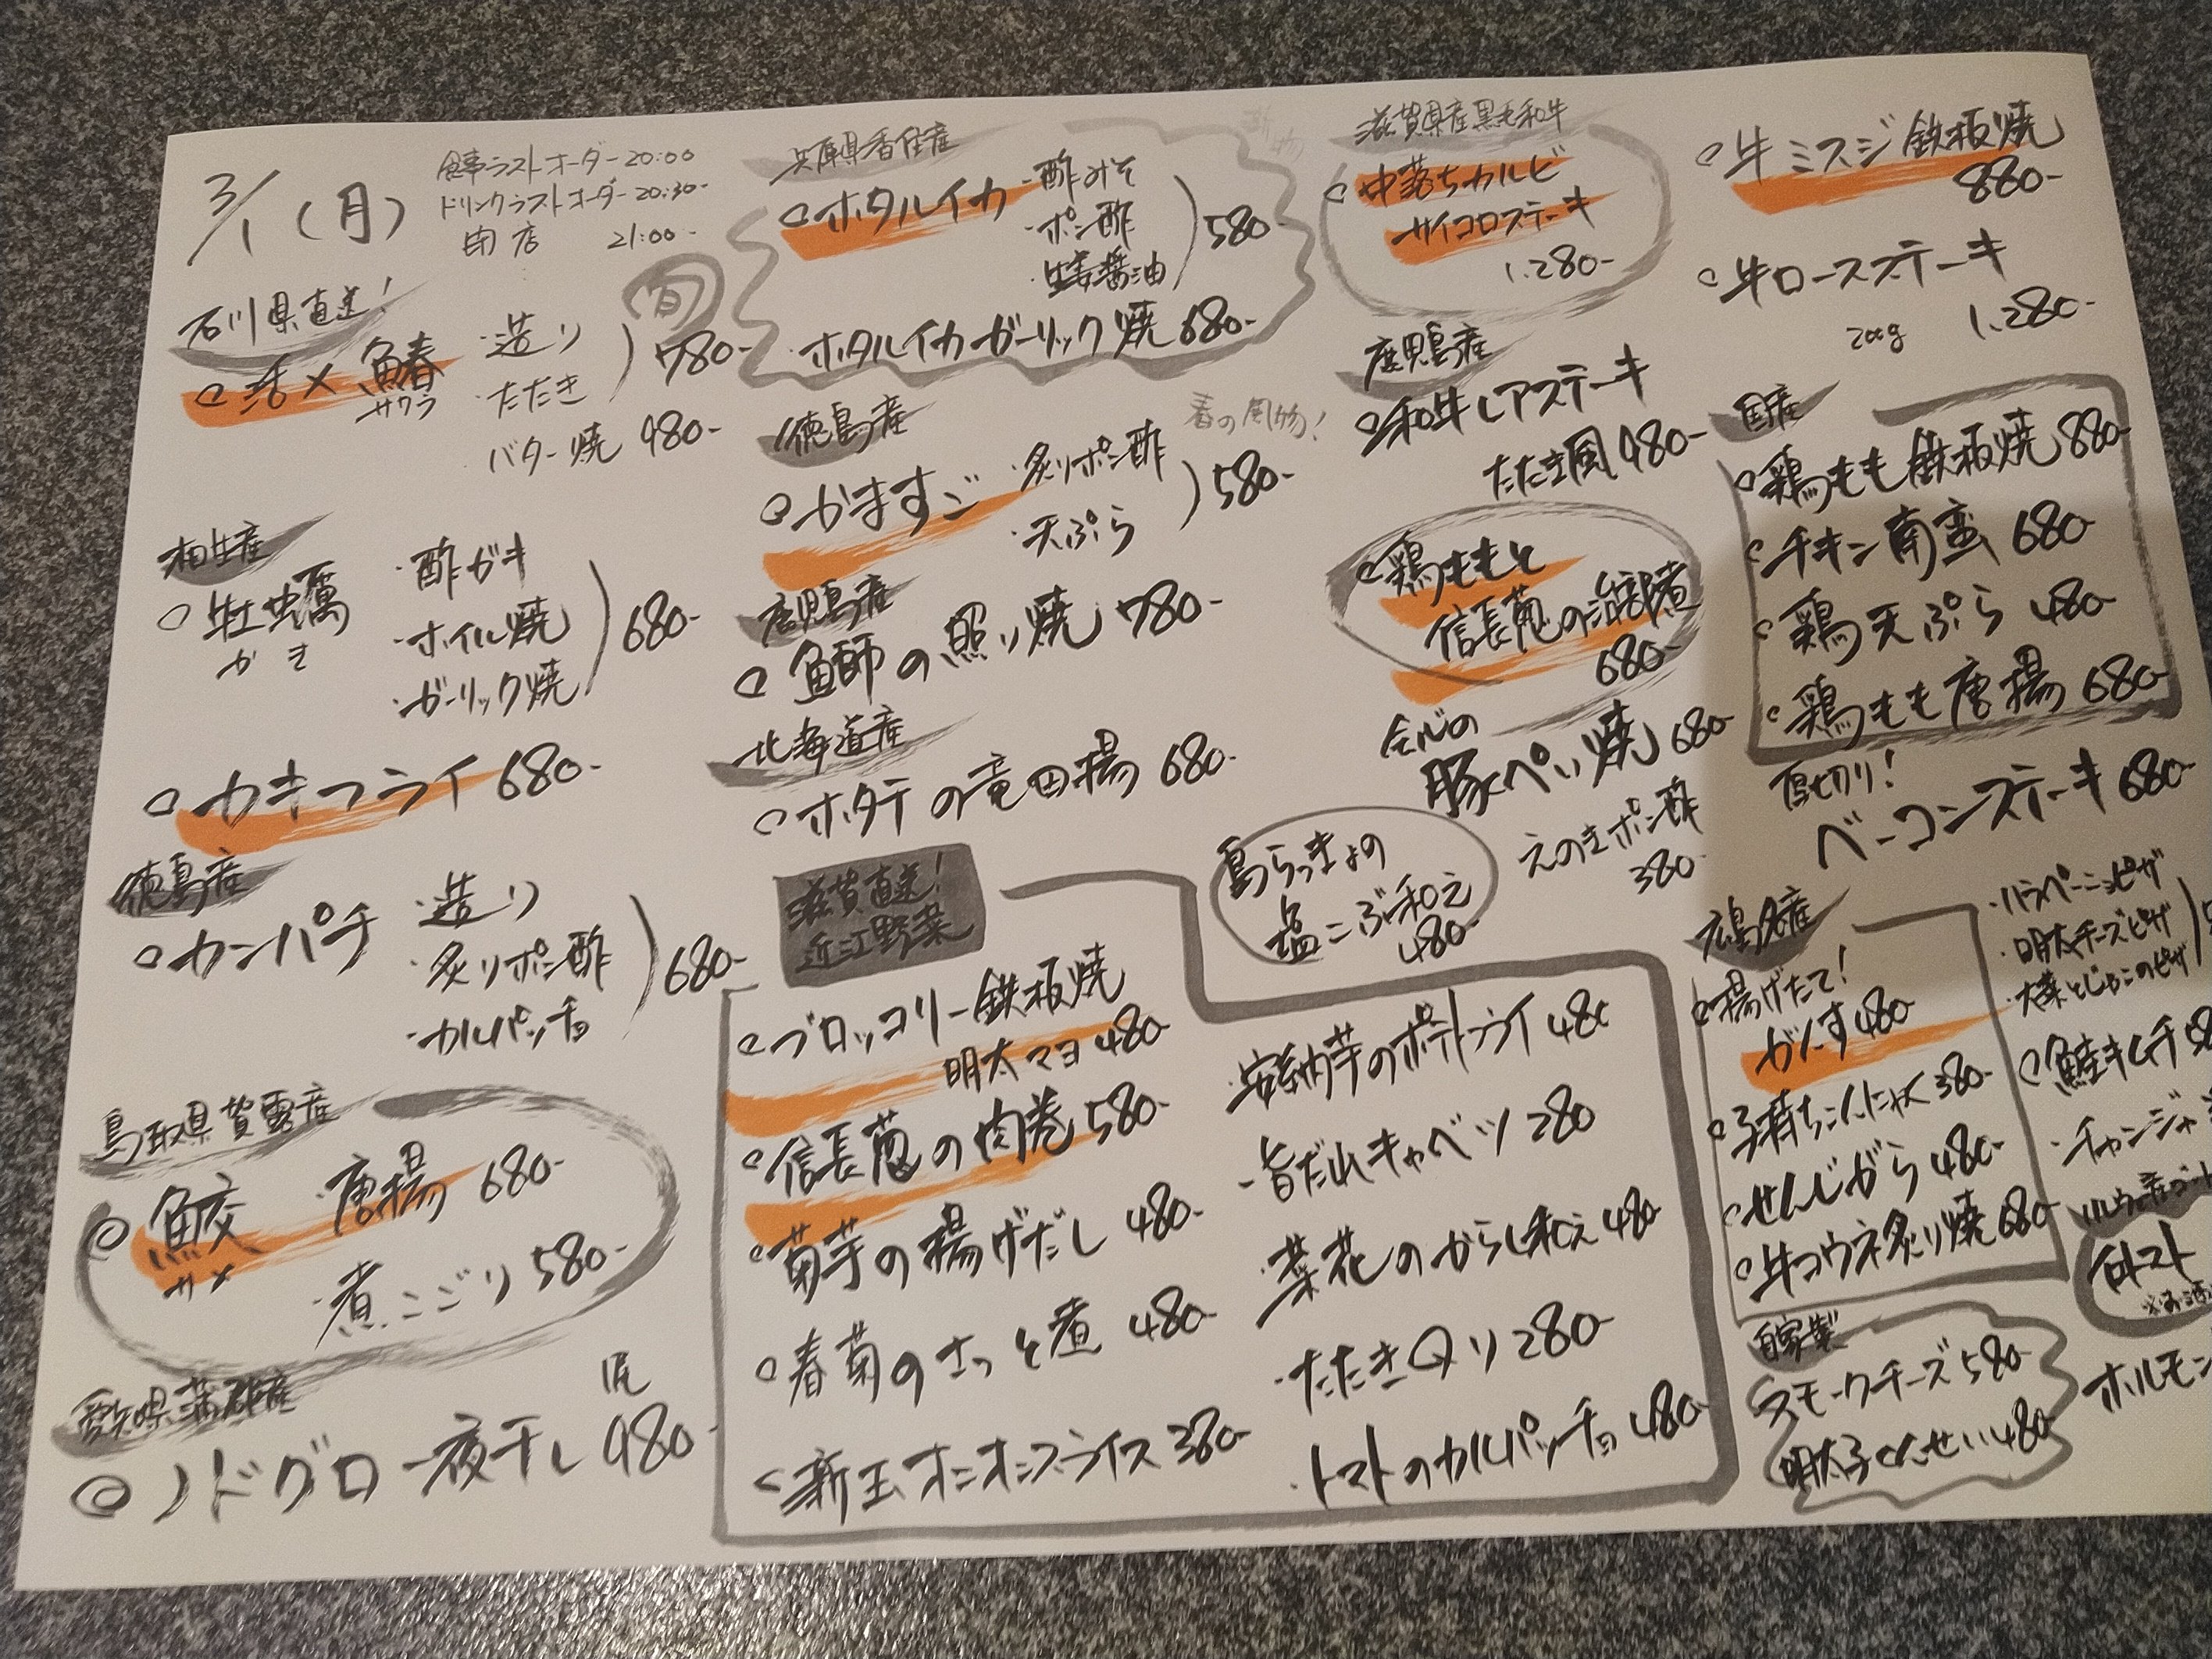 3/1 (月)
食事ラストオーダー 20:00
ドリンクラストオーダー 20:30-
閉店 21:00-
石川県直送!
活〆鰆 ・造り
サワラ ・たたき
780-
旬
バター焼 980-
相生産
牡蠣 ・酢ガキ
かき ・ホイル焼
・ガーリック焼
680-
カキフライ 680-
徳島産
カンパチ ・造り
・炙りポン酢
・カルパッチョ
680-
鳥取県賀露産
鮫 ・唐揚 680-
サメ
・煮こごり 580-
愛知県蒲郡産
ノドグロ一夜干し 1尾 980-
兵庫県香住産
ホタルイカ ・酢みそ
・ポン酢
・生姜醤油
580-
ホタルイカガーリック焼 680-
徳島産
春の風物!
かますご ・炙りポン酢
・天ぷら
580-
鹿児島産
鰤の照り焼 780-
北海道産
ホタテの竜田揚 680-
滋賀直送!
近江野菜
ブロッコリー鉄板焼
明太マヨ 480-
信長葱の肉巻 580-
菊芋の揚げだし 480-
春菊のさっと煮 480-
新玉オニオンスライス 380-
安納芋のポテトフライ 480
・旨だれキャベツ 280
・菜花のからし和え 480-
・たたきQリ 280-
・トマトのカルパッチョ 480-
島らっきょの
塩こぶ和え
480-
滋賀県産黒毛和牛
中落ちカルビ
サイコロステーキ
1,280-
鹿児島産
和牛レアステーキ
たたき風 980-
鶏ももと
信長葱の治部煮
680-
会心の
豚ぺい焼 680-
えのきポン酢
380-
牛ミスジ鉄板焼
880-
牛ロースステーキ
200g 1,280-
国産
鶏もも鉄板焼 880-
チキン南蛮 680-
鶏天ぷら 480-
鶏もも唐揚 680-
厚切り!
ベーコンステーキ 680-
広島名産
揚げたて!
がんす 480-
子持ちこんにゃく 380-
せんじがら 480-
牛コウネ炙り焼 680-
自家製
スモークチーズ 580-
明太子くんせい 480-
・ハラペーニョピザ
・明太チーズピザ
・大葉とじゃこのピザ
鮭キムチ
・チャンジャ
トマト
ホルモン